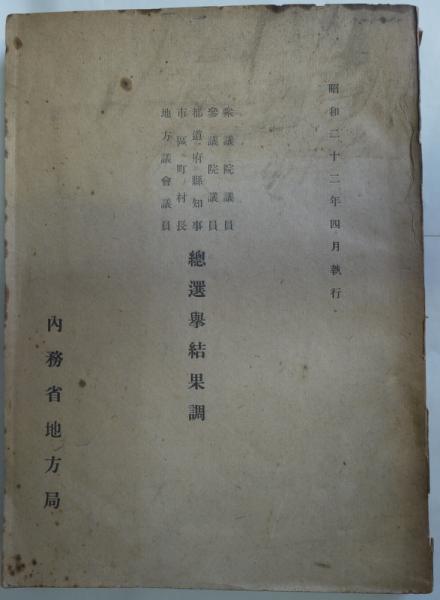 昭和二十二年四月執行
衆議院議員
參議院議員
都道府縣知事
市區町村長
地方議會議員
總選擧結果調
內務省地方局